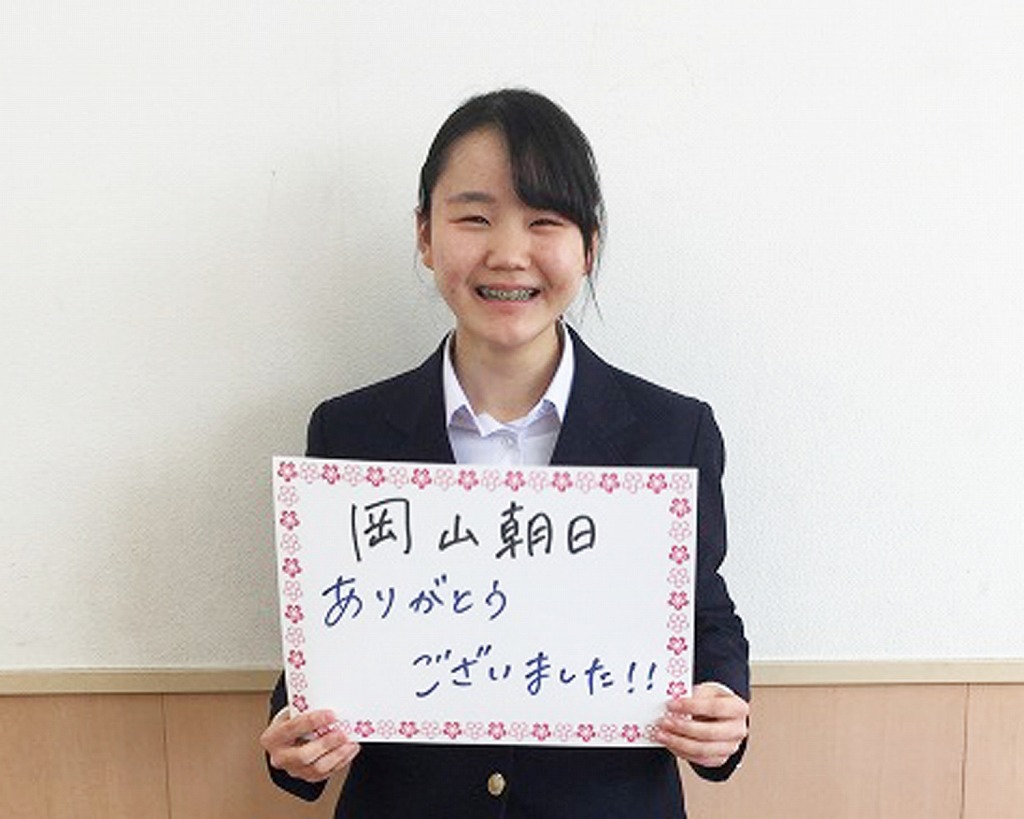 岡山朝日
ありがとう
ございました!!